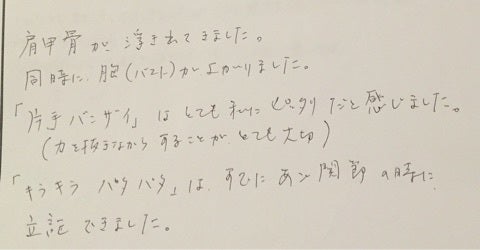 肩甲骨が浮き出てきました。
同時に、胸(バスト)が上がりました。
「片手バンザイ」はとても私にピッタリだと感じました。
(力を抜きながらすることが、とても大切)
「キラキラ パタパタ」は、すでにあご関節の時に
立証できました。